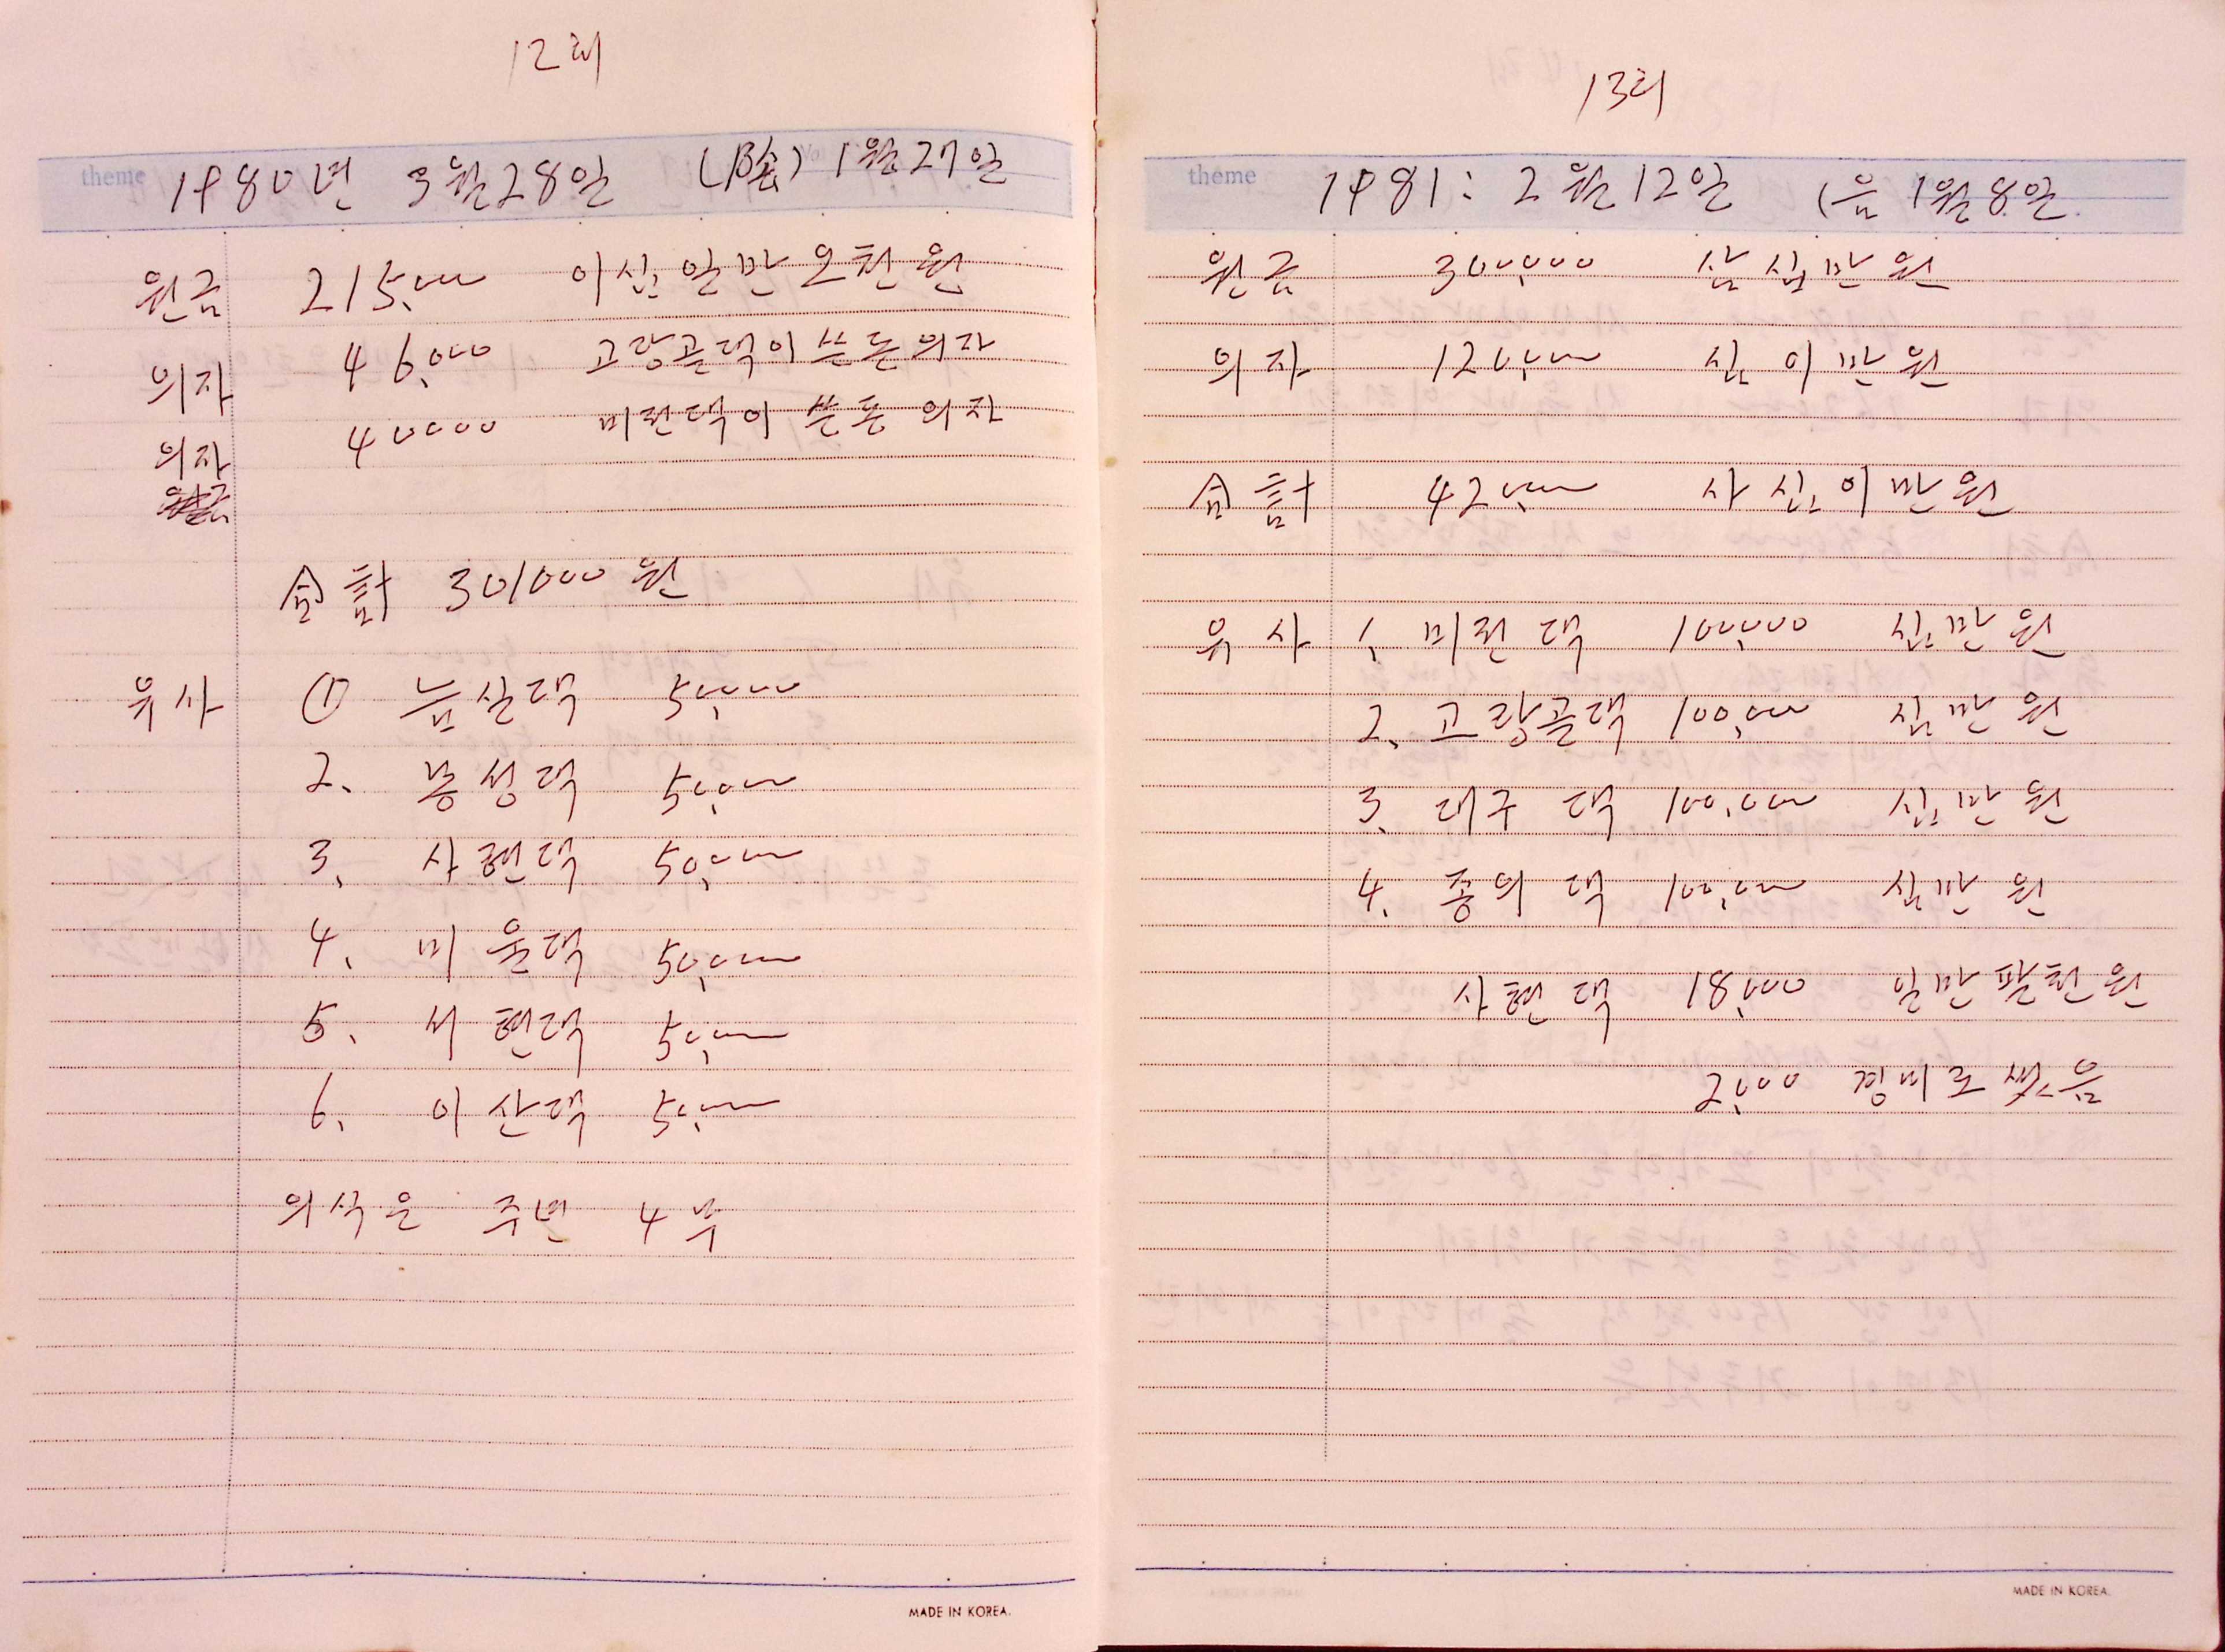 12회
theme 1980년 3월28일 (陰) 1월27일
원금 215,000 이십일만오천원
의자 46,000 고랑골댁이 쓰든의자
의자 40000 미전댁이 쓴든 의자
合計 301000원
유사 ① 늠실댁 50,000
2. 봉성댁 50,000
3. 사현댁 50,000
4. 미울댁 50,000
5. 서현댁 50,000
6. 이산댁 50,000
의식은 주년 4부
MADE IN KOREA.
13회
theme 1981: 2월12일 (음 1월8일
원금 300,000 삼십만원
의자 120,000 십이만원
合計 420,000 사십이만원
유사 1, 미전댁 100,000 십만원
2. 고랑골댁 100,000 십만원
3. 대구댁 100,000 십만원
4. 종의댁 100,000 십만원
사현댁 18,000 일만팔천원
2,000
MADE IN KOREA.